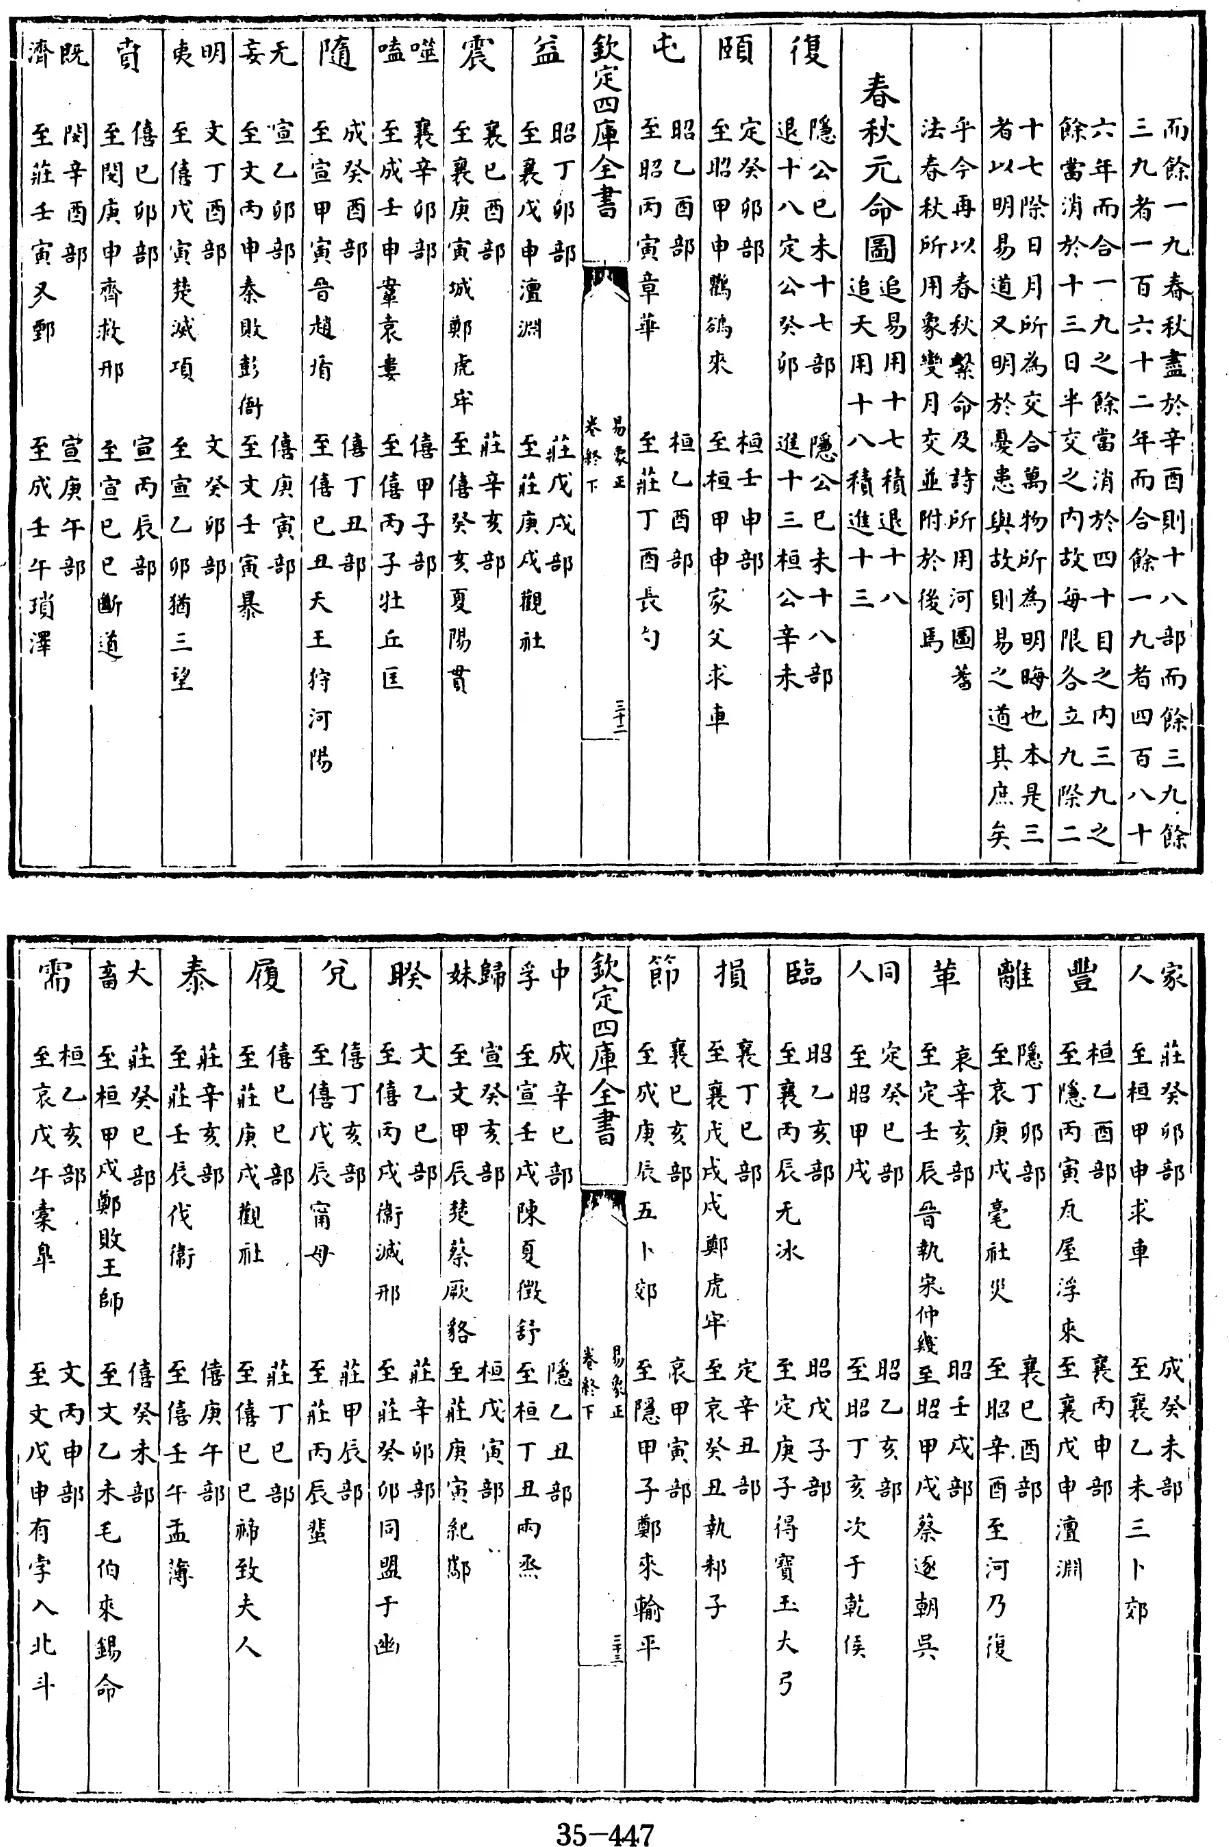 而餘一九春秋盡於辛酉則十八部而餘三九餘
三九者一百六十二年而合餘一九者四百八十
六年而合一九之餘當消於四十日之內三九之
餘當消於十三日半交之內故每限各立九際二
十七際日月所為交合萬物所為明晦也本是三
者以明易道又明於憂患與故則易之道其庶矣
乎今再以春秋繫命及詩所用河圖蓍
法春秋所用象變月交並附於後焉
春秋元命圖
追易用十七積退十八
追天用十八積進十三
復
隱公己未十七部
退十八定公癸卯
隱公己未十八部
進十三桓公辛未
頤
定癸卯部
至昭甲申鸜鵒來
桓壬申部
至桓甲申家父求車
屯
昭乙酉部
至昭丙寅章華
桓乙酉部
至莊丁酉長勺
欽定四庫全書
易象正
卷終下
三十二
益
昭丁卯部
至襄戊申澶淵
莊戊戌部
至莊庚戌觀社
震
襄己酉部
至襄庚寅城鄭虎牢
莊辛亥部
至僖癸亥夏陽貫
噬嗑
襄辛卯部
至成壬申鞌袁婁
僖甲子部
至僖丙子牡丘匡
隨
成癸酉部
至宣甲寅晉趙盾
僖丁丑部
至僖己丑天王狩河陽
无妄
宣乙卯部
至文丙申秦敗彭衙
僖庚寅部
至文壬寅暴
明夷
文丁酉部
至僖戊寅楚滅項
文癸卯部
至宣乙卯猶三望
賁
僖己卯部
至閔庚申齊救邢
宣丙辰部
至宣己巳斷道
既濟
閔辛酉部
至莊壬寅又鄄
宣庚午部
至成壬午瑣澤
家人
莊癸卯部
至桓甲申求車
成癸未部
至襄乙未三卜郊
豐
桓乙酉部
至隱丙寅瓦屋浮來
襄丙申部
至襄戊申澶淵
離
隱丁卯部
至哀庚戌亳社災
襄己酉部
至昭辛酉至河乃復
革
哀辛亥部
至定壬辰晉執宋仲幾
昭壬戌部
至昭甲戌蔡逐朝吳
同人
定癸巳部
至昭甲戌
昭乙亥部
至昭丁亥次于乾侯
臨
昭乙亥部
至襄丙辰无冰
昭戊子部
至定庚子得寶玉大弓
損
襄丁巳部
至襄戊戌戍鄭虎牢
定辛丑部
至哀癸丑執邾子
節
襄己亥部
至成庚辰五卜郊
哀甲寅部
至隱甲子鄭來輸平
欽定四庫全書
易象正
卷終下
三十三
中孚
成辛巳部
至宣壬戌陳夏徵舒
隱乙丑部
至桓丁丑兩烝
歸妹
宣癸亥部
至文甲辰楚蔡厥貉
桓戊寅部
至莊庚寅紀鄑
睽
文乙巳部
至僖丙戌衛滅邢
莊辛卯部
至莊癸卯同盟于幽
兌
僖丁亥部
至僖戊辰甯母
莊甲辰部
至莊丙辰蜚
履
僖己巳部
至莊庚戌觀社
莊丁巳部
至僖己巳禘致夫人
泰
莊辛亥部
至莊壬辰伐衛
僖庚午部
至僖壬午盂薄
大畜
莊癸巳部
至桓甲戌鄭敗王師
僖癸未部
至文乙未毛伯來錫命
需
桓乙亥部
至哀戊午橐皐
文丙申部
至文戊申有孛入北斗
35-447